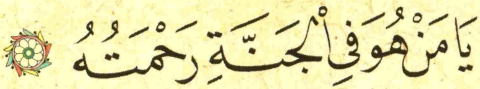 يَا مَنْ هُوَ فِي ٱلْجَنَّةِ رَحْمَتُهُ